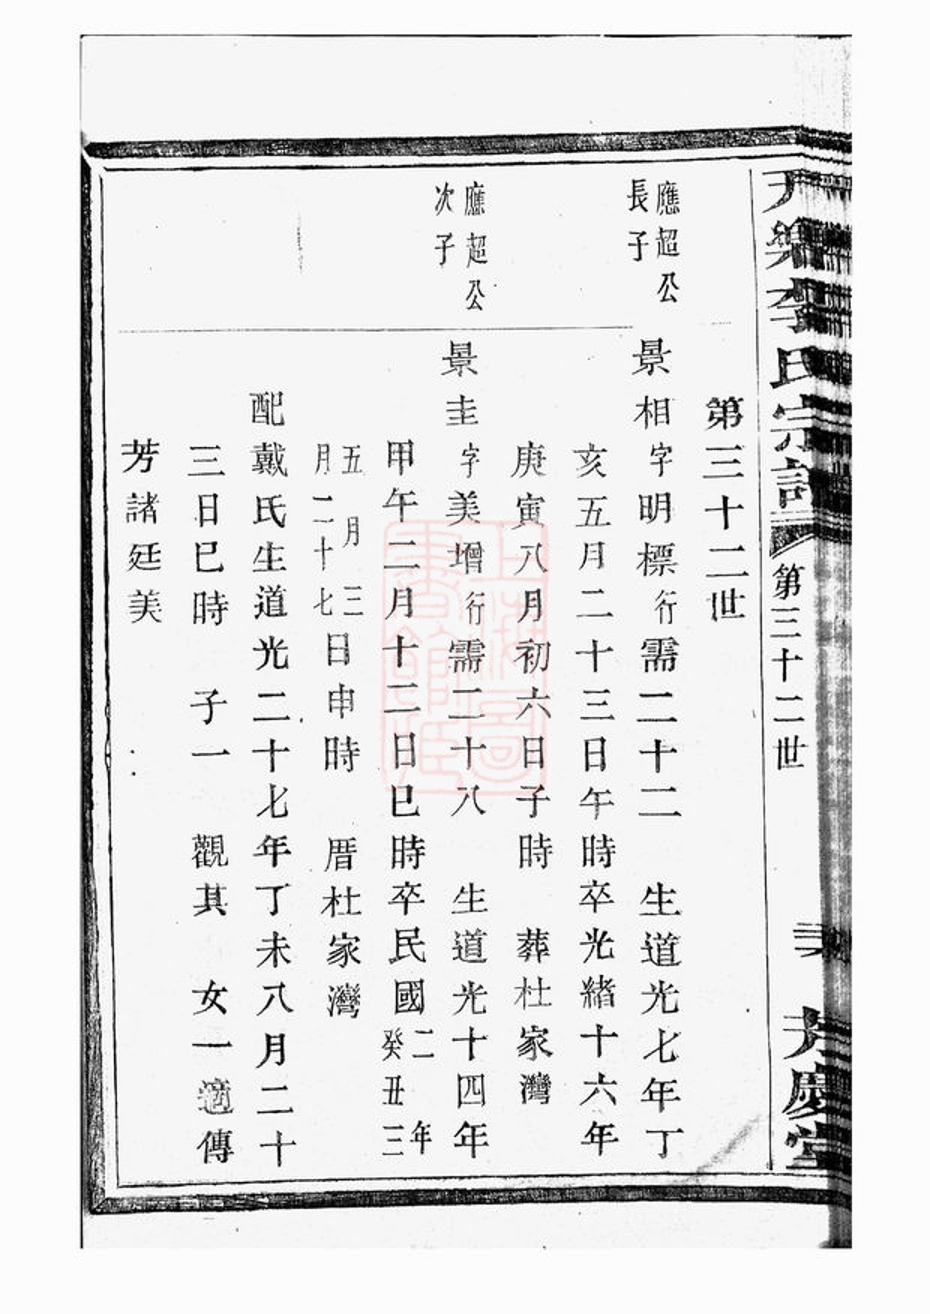 氏宗譜
第三十二世
慶堂
第三十二世
應超公
長子
景相字明標行需二十二 生道光七年丁
亥五月二十三日午時卒光緒十六年
庚寅八月初六日子時 葬杜家灣
應超公
次子
景圭字美增行需二十八 生道光十四年
甲午二月十二日巳時卒民國二年癸丑三
五月三月二十七日申時 厝杜家灣
配戴氏生道光二十七年丁未八月二十
三日巳時 子一 觀其 女一適傳
芳諸廷美
上海圖
書館藏